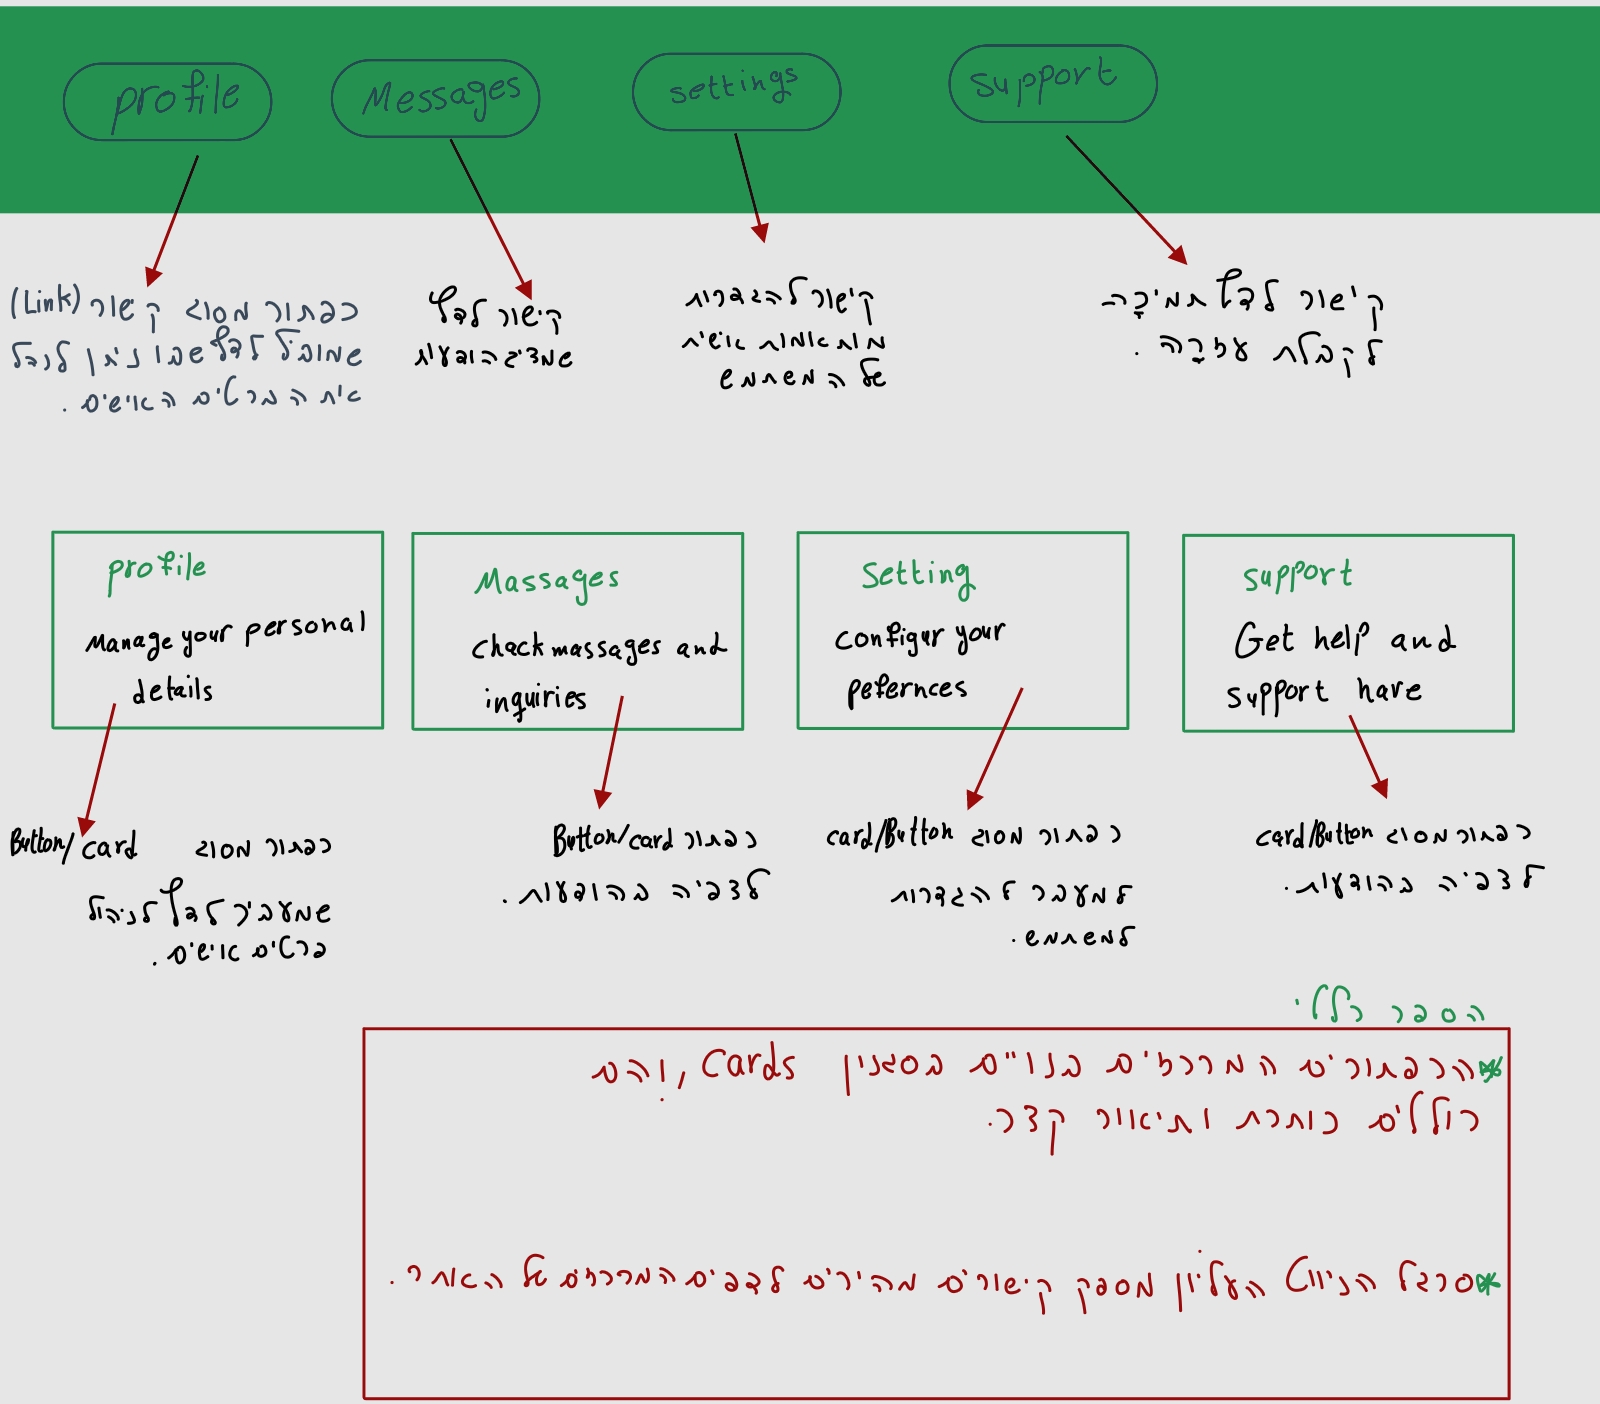 profile
Messages
settings
support
כפתור מסוג קישור (Link)
שמוביל לדף שבו ניתן לנהל
את הפרטים האישים.
קישור לדף
שמציג הודעות
קישור להגדרות
מותאמות אישית
של המשתמש
קישור לדף תמיכה
לקבלת עזרה.
profile
Manage your personal
details
Massages
Chack massages and
inquiries
Setting
Configur your
pefernces
support
Get help and
support hare
כפתור מסוג Button/card
שמעביר לדף לניהול
פרטים אישים.
כפתור Button/card
לצפיה בהודעות.
כפתור מסוג card/Button
למעבר להגדרות
למשתמש.
כפתור מסוג card/Button
לצפיה בהודעות.
הסבר כללי
*הכפתורים המרכזים בנויים בסגנון Cards, והם
כוללים כותרת ותיאור קצר.
*סרגל הניווט העליון מספק קישורים מהירים לדפים המרכזים של האתר.